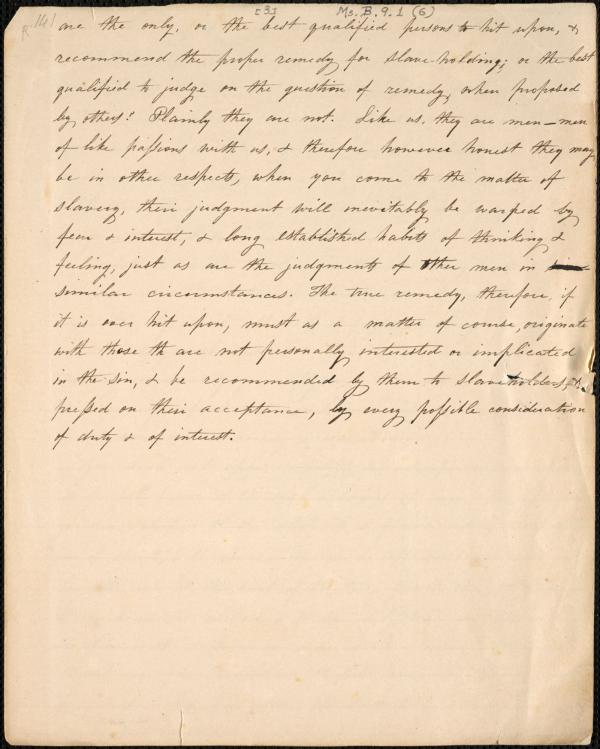 [3] Ms. B. 9.1 (6)
are the only, or the best qualified persons to hit upon, &
recommend the proper remedy for slave-holding; or the best
qualified to judge on the question of remedy, when proposed
by others? Plainly they are not. Like us, they are men – men
of like passions with us, & therefore however honest they may
be in other respects, when you come to the matter of
slavery, their judgment will inevitably be warped by
fear & interest, & long established habits of thinking &
feeling, just as are the judgments of other men in
similar circumstances. The true remedy, therefore, if
it is ever hit upon, must as a matter of course, originate
with those th are not personally interested or implicated
in the sin, & be recommended by them to slaveholders, &
pressed on their acceptance, by every possible consideration
of duty & of interest.